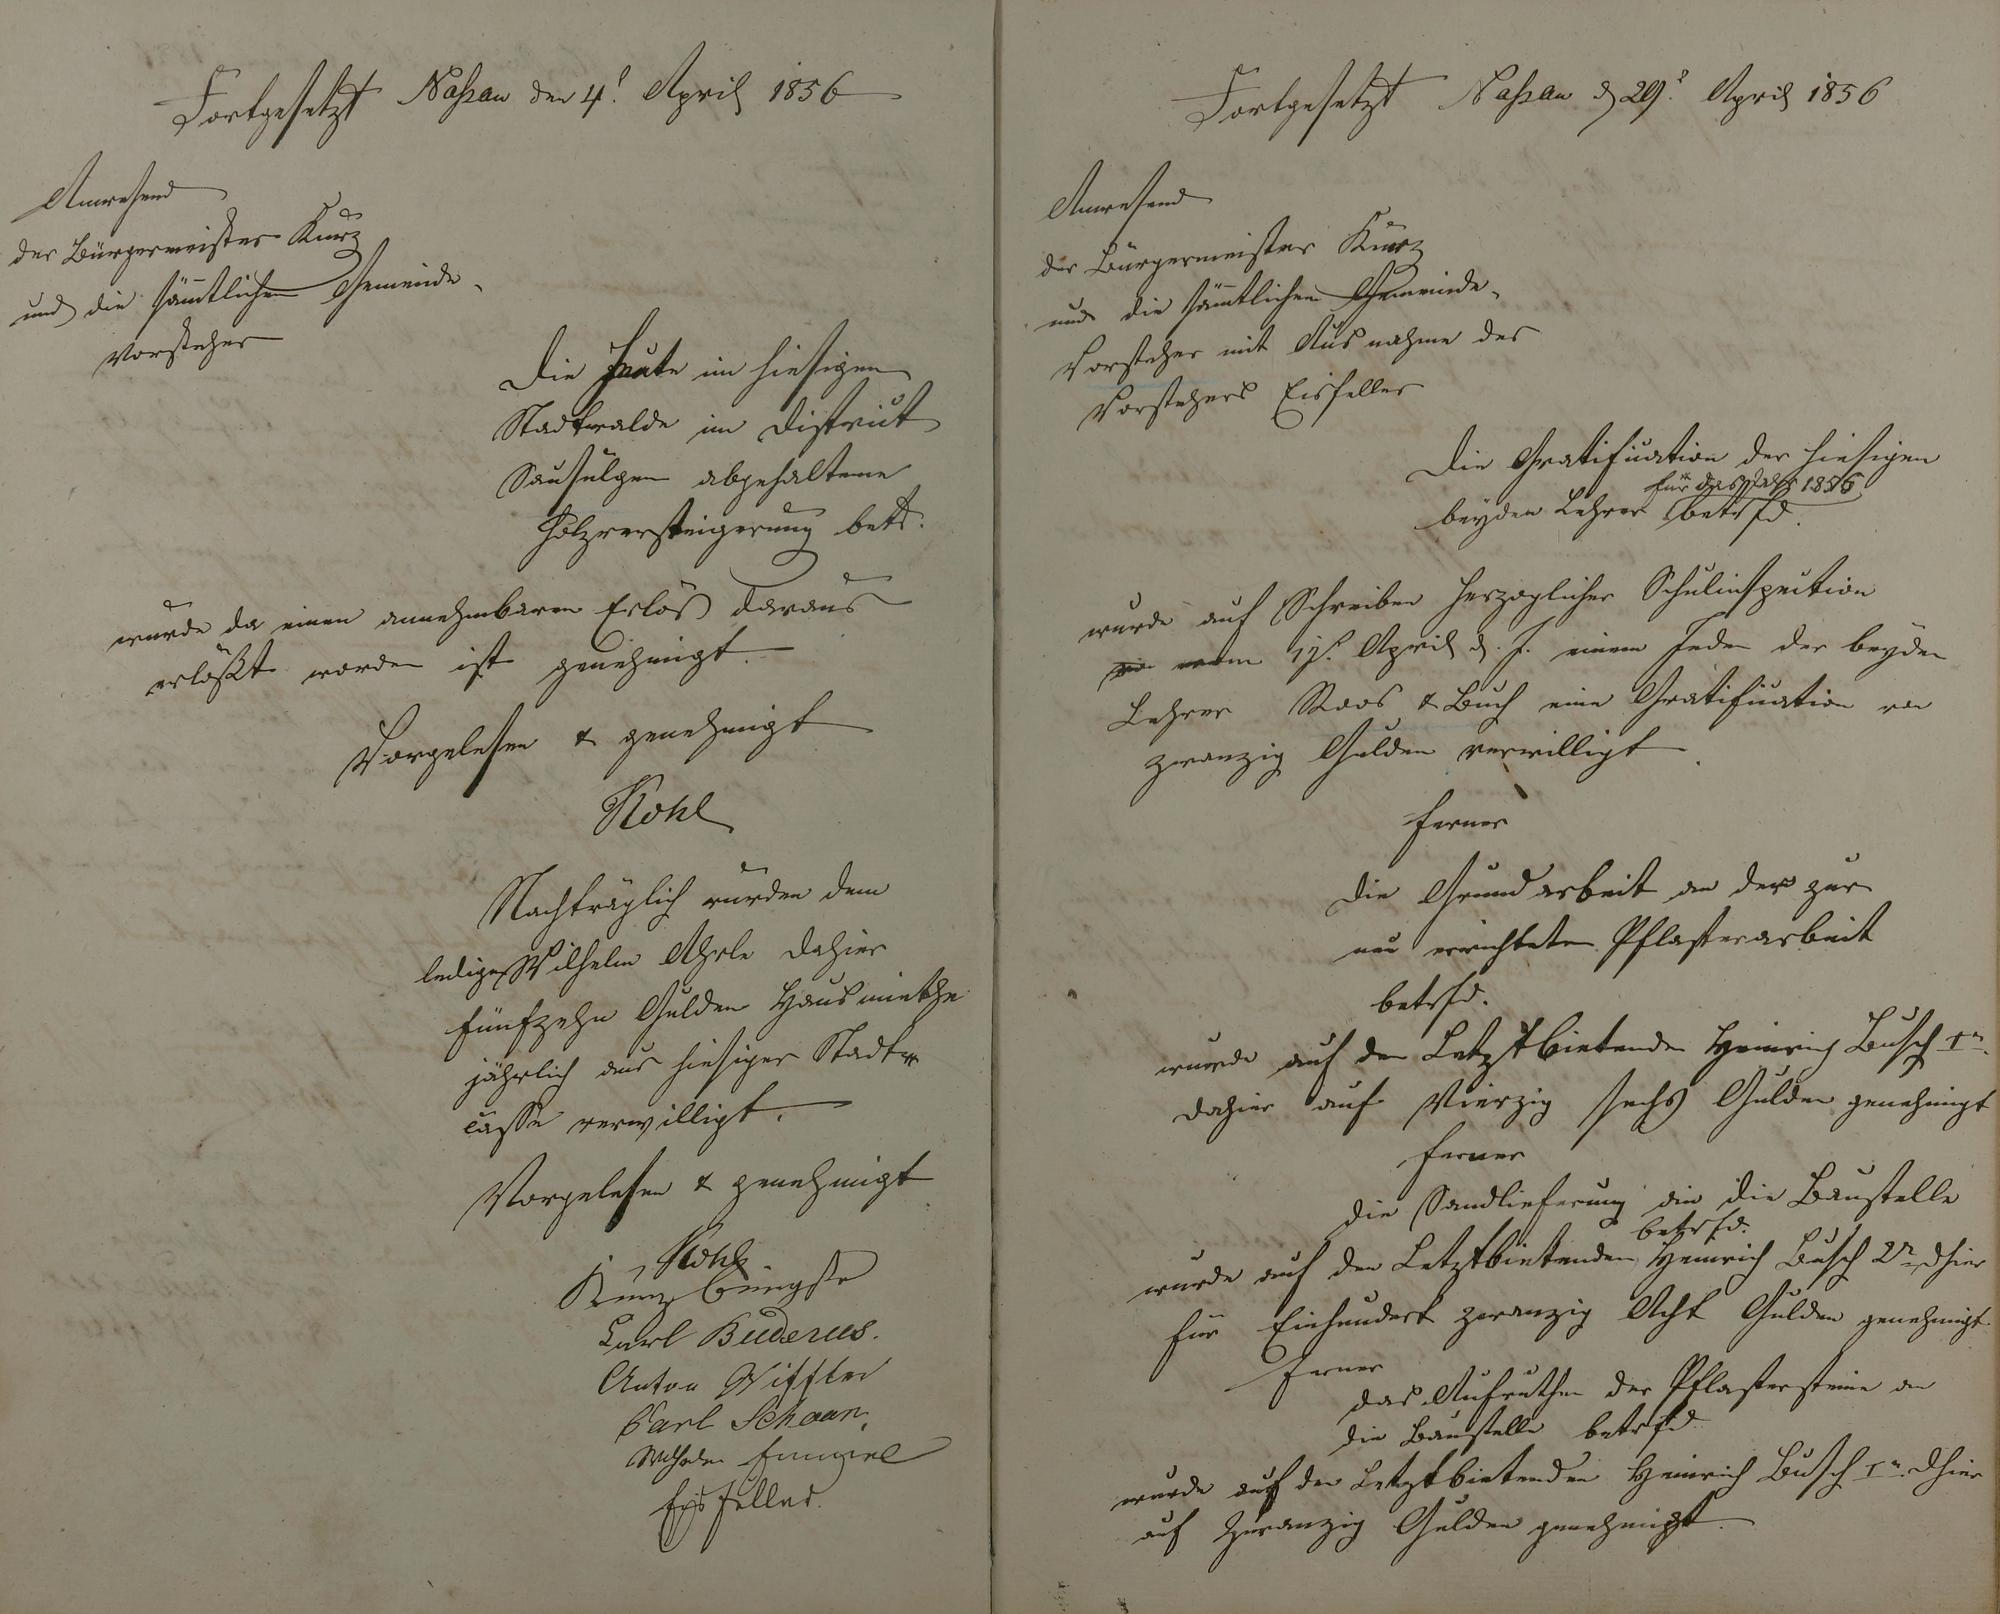 Fortgesetzt Nassau den 4t. April 1856
Anwesend
der Bürgermeister Kurz
und die sämmtlichen Gemeinde-
vorsteher
Die heute im hiesigen
Stadtwalde im District
abgehaltene
Holzversteigerung betr.
wurde da einen annehmbaren Erlös daraus
erlößt worden ist genehmigt.
Vorgelesen & genehmigt
Kohl
Nachträglich wurden dem
ledigen Wilhelm dahier
fünfzehn Gulden Hausmiethe
jährlich aus hiesiger Stadt
casse verwilligt.
Vorgelesen & genehmigt
Kohl
Kurz
Carl Buderus.
Anton
Carl Schaan.
Wilhelm
Eisfeller.
Fortgesetzt Nassau d 29t. April 1856
Anwesend
der Bürgermeister Kurz
und die sämmtlichen Gemeinde-
Vorsteher mit Ausnahme des
Vorstehers Eisfeller
Die Gratification der hiesigen
für das Jahr 1856
beyden Lehrer betrfd.
wurde auf Schreiben Herzoglicher Schulinspection
vom April d. J. einem Jeden der beyden
Lehrer Roos & Buch eine Gratification von
zwanzig Gulden verwilligt
ferner
Die Grundarbeit an der zur
neu errichteten Pflasterarbeit
betrfd.
wurde auf den Letztbietenden Heinrich Busch 1r.
dahier auf Vierzig sechs Gulden genehmigt
ferner
die Sandlieferung an die Baustelle
betrfd.
wurde auf den Letztbietenden Heinrich Busch 2r dhier
für Einhundert zwanzig Acht Gulden genehmigt
ferner
das der Pflastersteine an
die Baustelle betrfd
wurde auf den Letztbietenden Heinrich Busch 1r. dhier
auf Zwanzig Gulden genehmigt.